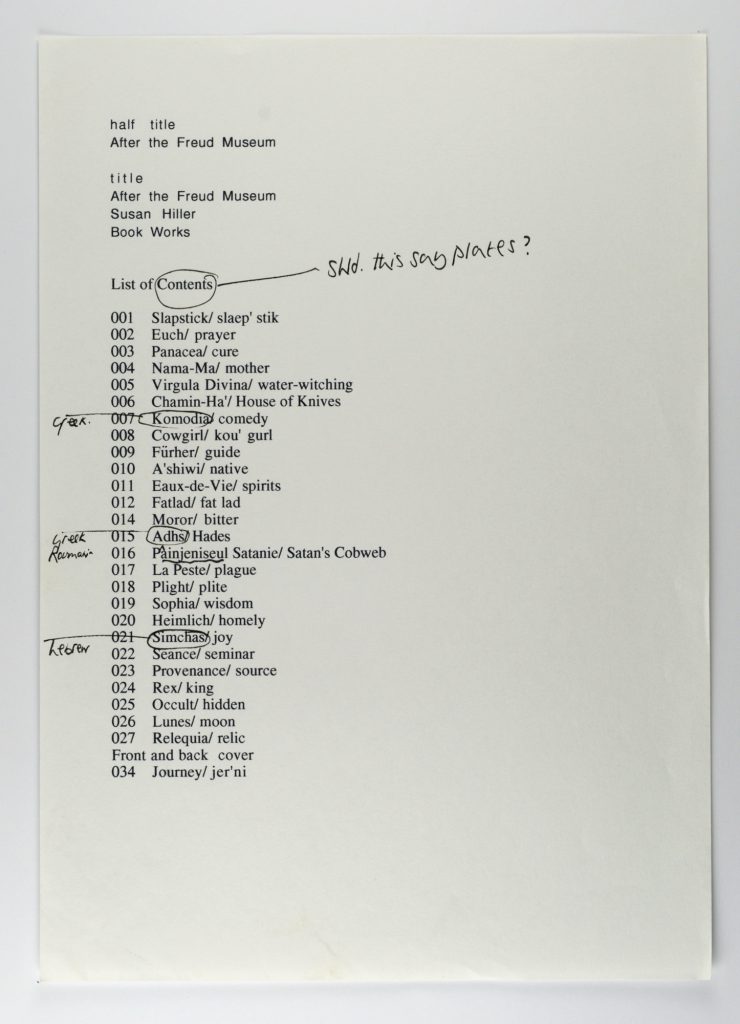 half title
After the Freud Museum
title
After the Freud Museum
Susan Hiller
Book Works
List of Contents
Shld. this say plates?
001 Slapstick/ slaep' stik
002 Euch/ prayer
003 Panacea/ cure
004 Nama-Ma/ mother
005 Virgula Divina/ water-witching
006 Chamin-Ha'/ House of Knives
Greek.
007 Komodia/ comedy
008 Cowgirl/ kou' gurl
009 Fürher/ guide
010 A'shiwi/ native
011 Eaux-de-Vie/ spirits
012 Fatlad/ fat lad
014 Moror/ bitter
Greek
015 Adhs/ Hades
016 Painjeniseul Satanie/ Satan's Cobweb
017 La Peste/ plague
018 Plight/ plite
019 Sophia/ wisdom
020 Heimlich/ homely
021 Simchas/ joy
Hebrew
022 Seance/ seminar
023 Provenance/ source
024 Rex/ king
025 Occult/ hidden
026 Lunes/ moon
027 Relequia/ relic
Front and back cover
034 Journey/ jer'ni